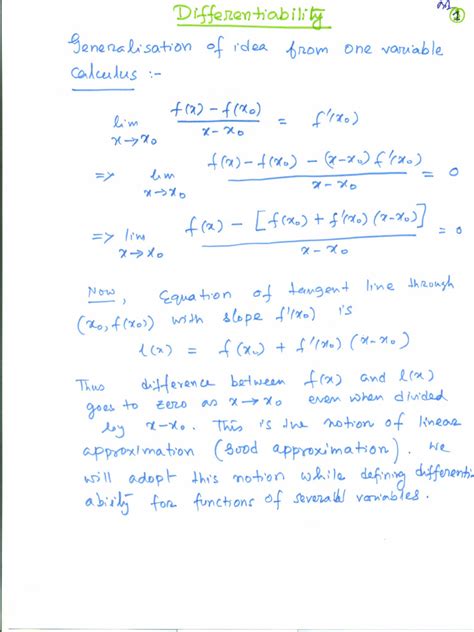 Differentiability
1
Generalisation of idea from one variable
Calculus :-
lim x→x₀ (f(x) - f(x₀))/(x - x₀) = f'(x₀)
=> lim x→x₀ (f(x) - f(x₀) - (x-x₀) f'(x₀))/(x - x₀) = 0
=> lim x→x₀ (f(x) - [f(x₀) + f'(x₀) (x-x₀)])/(x - x₀) = 0
Now, Equation of tangent line through
(x₀, f(x₀)) with slope f'(x₀) is
l(x) = f(x₀) + f'(x₀) (x-x₀)
Thus difference between f(x) and l(x)
goes to zero as x→x₀ even when divided
by x-x₀. This is the notion of linear
approximation (good approximation). We
will adopt this notion while defining differenti-
ability for functions of several variables.